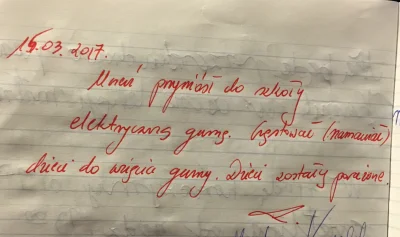 15.03.2017.
Uczeń przyniósł do szkoły
elektryczną gumę. Częstował (namawiał)
dzieci do wzięcia gumy. Dzieci zostały porażone.